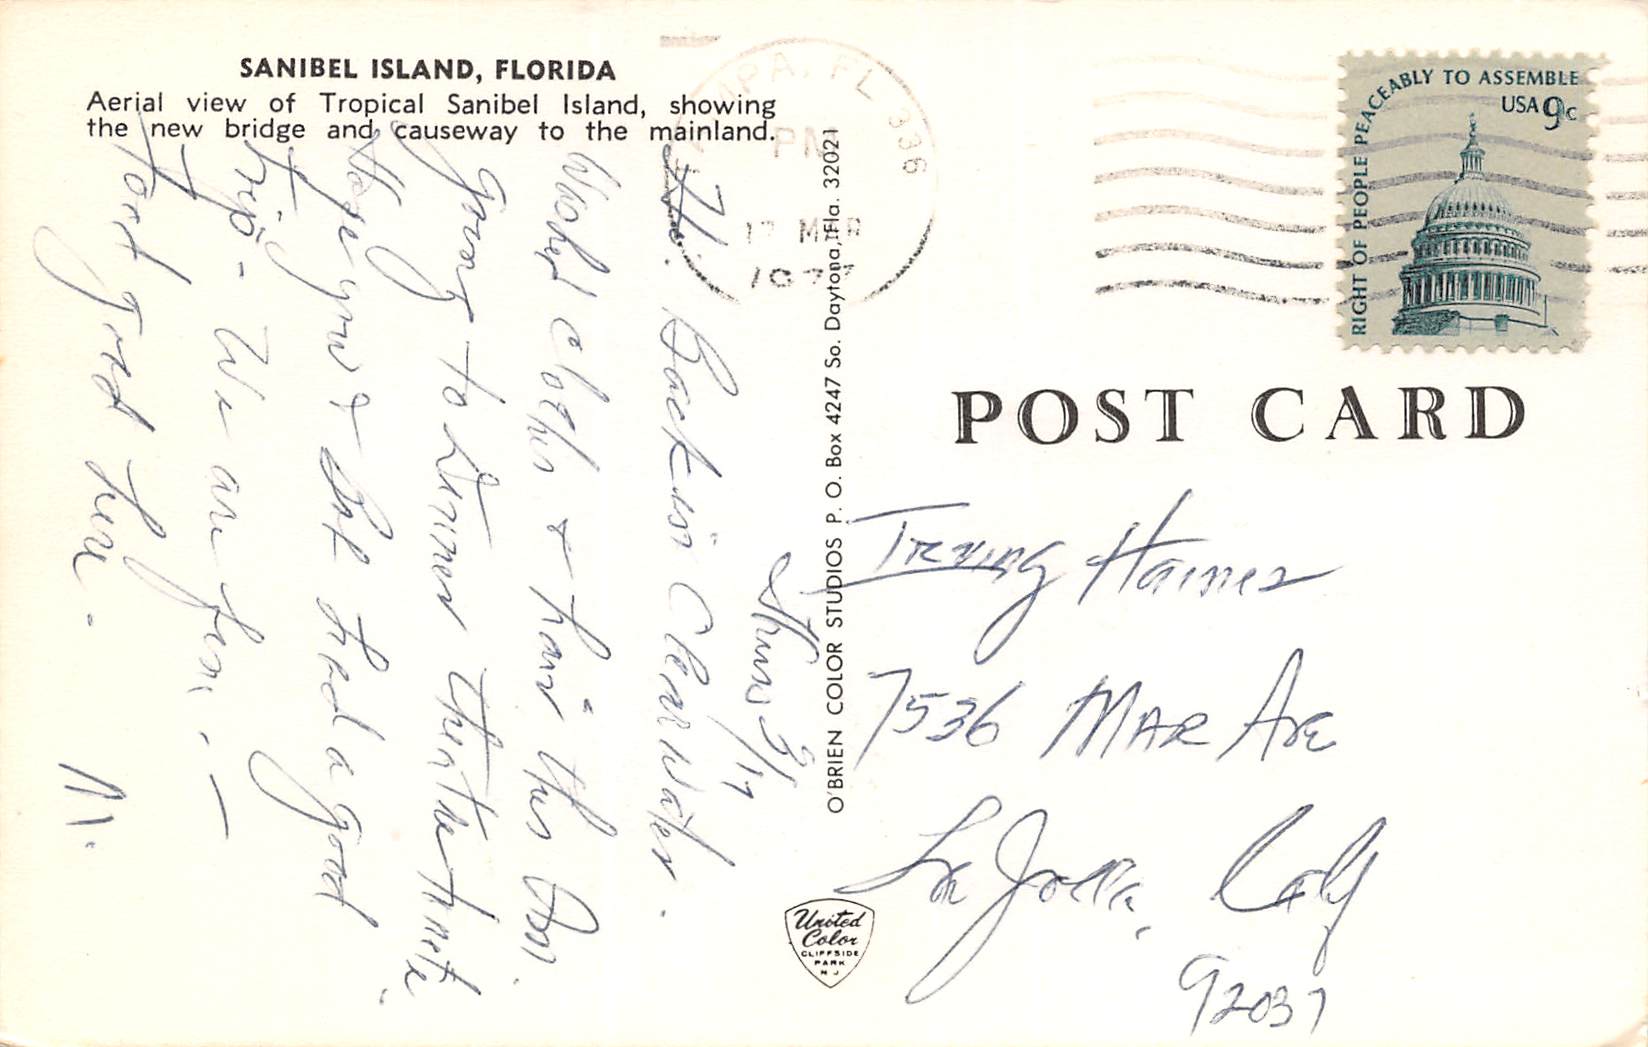 SANIBEL ISLAND, FLORIDA
Aerial view of Tropical Sanibel Island, showing
the new bridge and causeway to the mainland.
Thurs 3/17
H. Back in Clearwater.
Washed clothes & hair this
going to dinner theatre
Hope you & had a good
trip - We are fine. -
good here.
M.
O'BRIEN COLOR STUDIOS P. O. Box 4247 So. Daytona, Fla. 32021
United
Color
CLIFFSIDE
PARK
N J
TAMPA, FL 336
PM
17 MAR
1977
RIGHT OF PEOPLE PEACEABLY TO ASSEMBLE
USA 9c
POST CARD
Irving Haines
7536 MAR Ave
La Jolla, Calif
92037